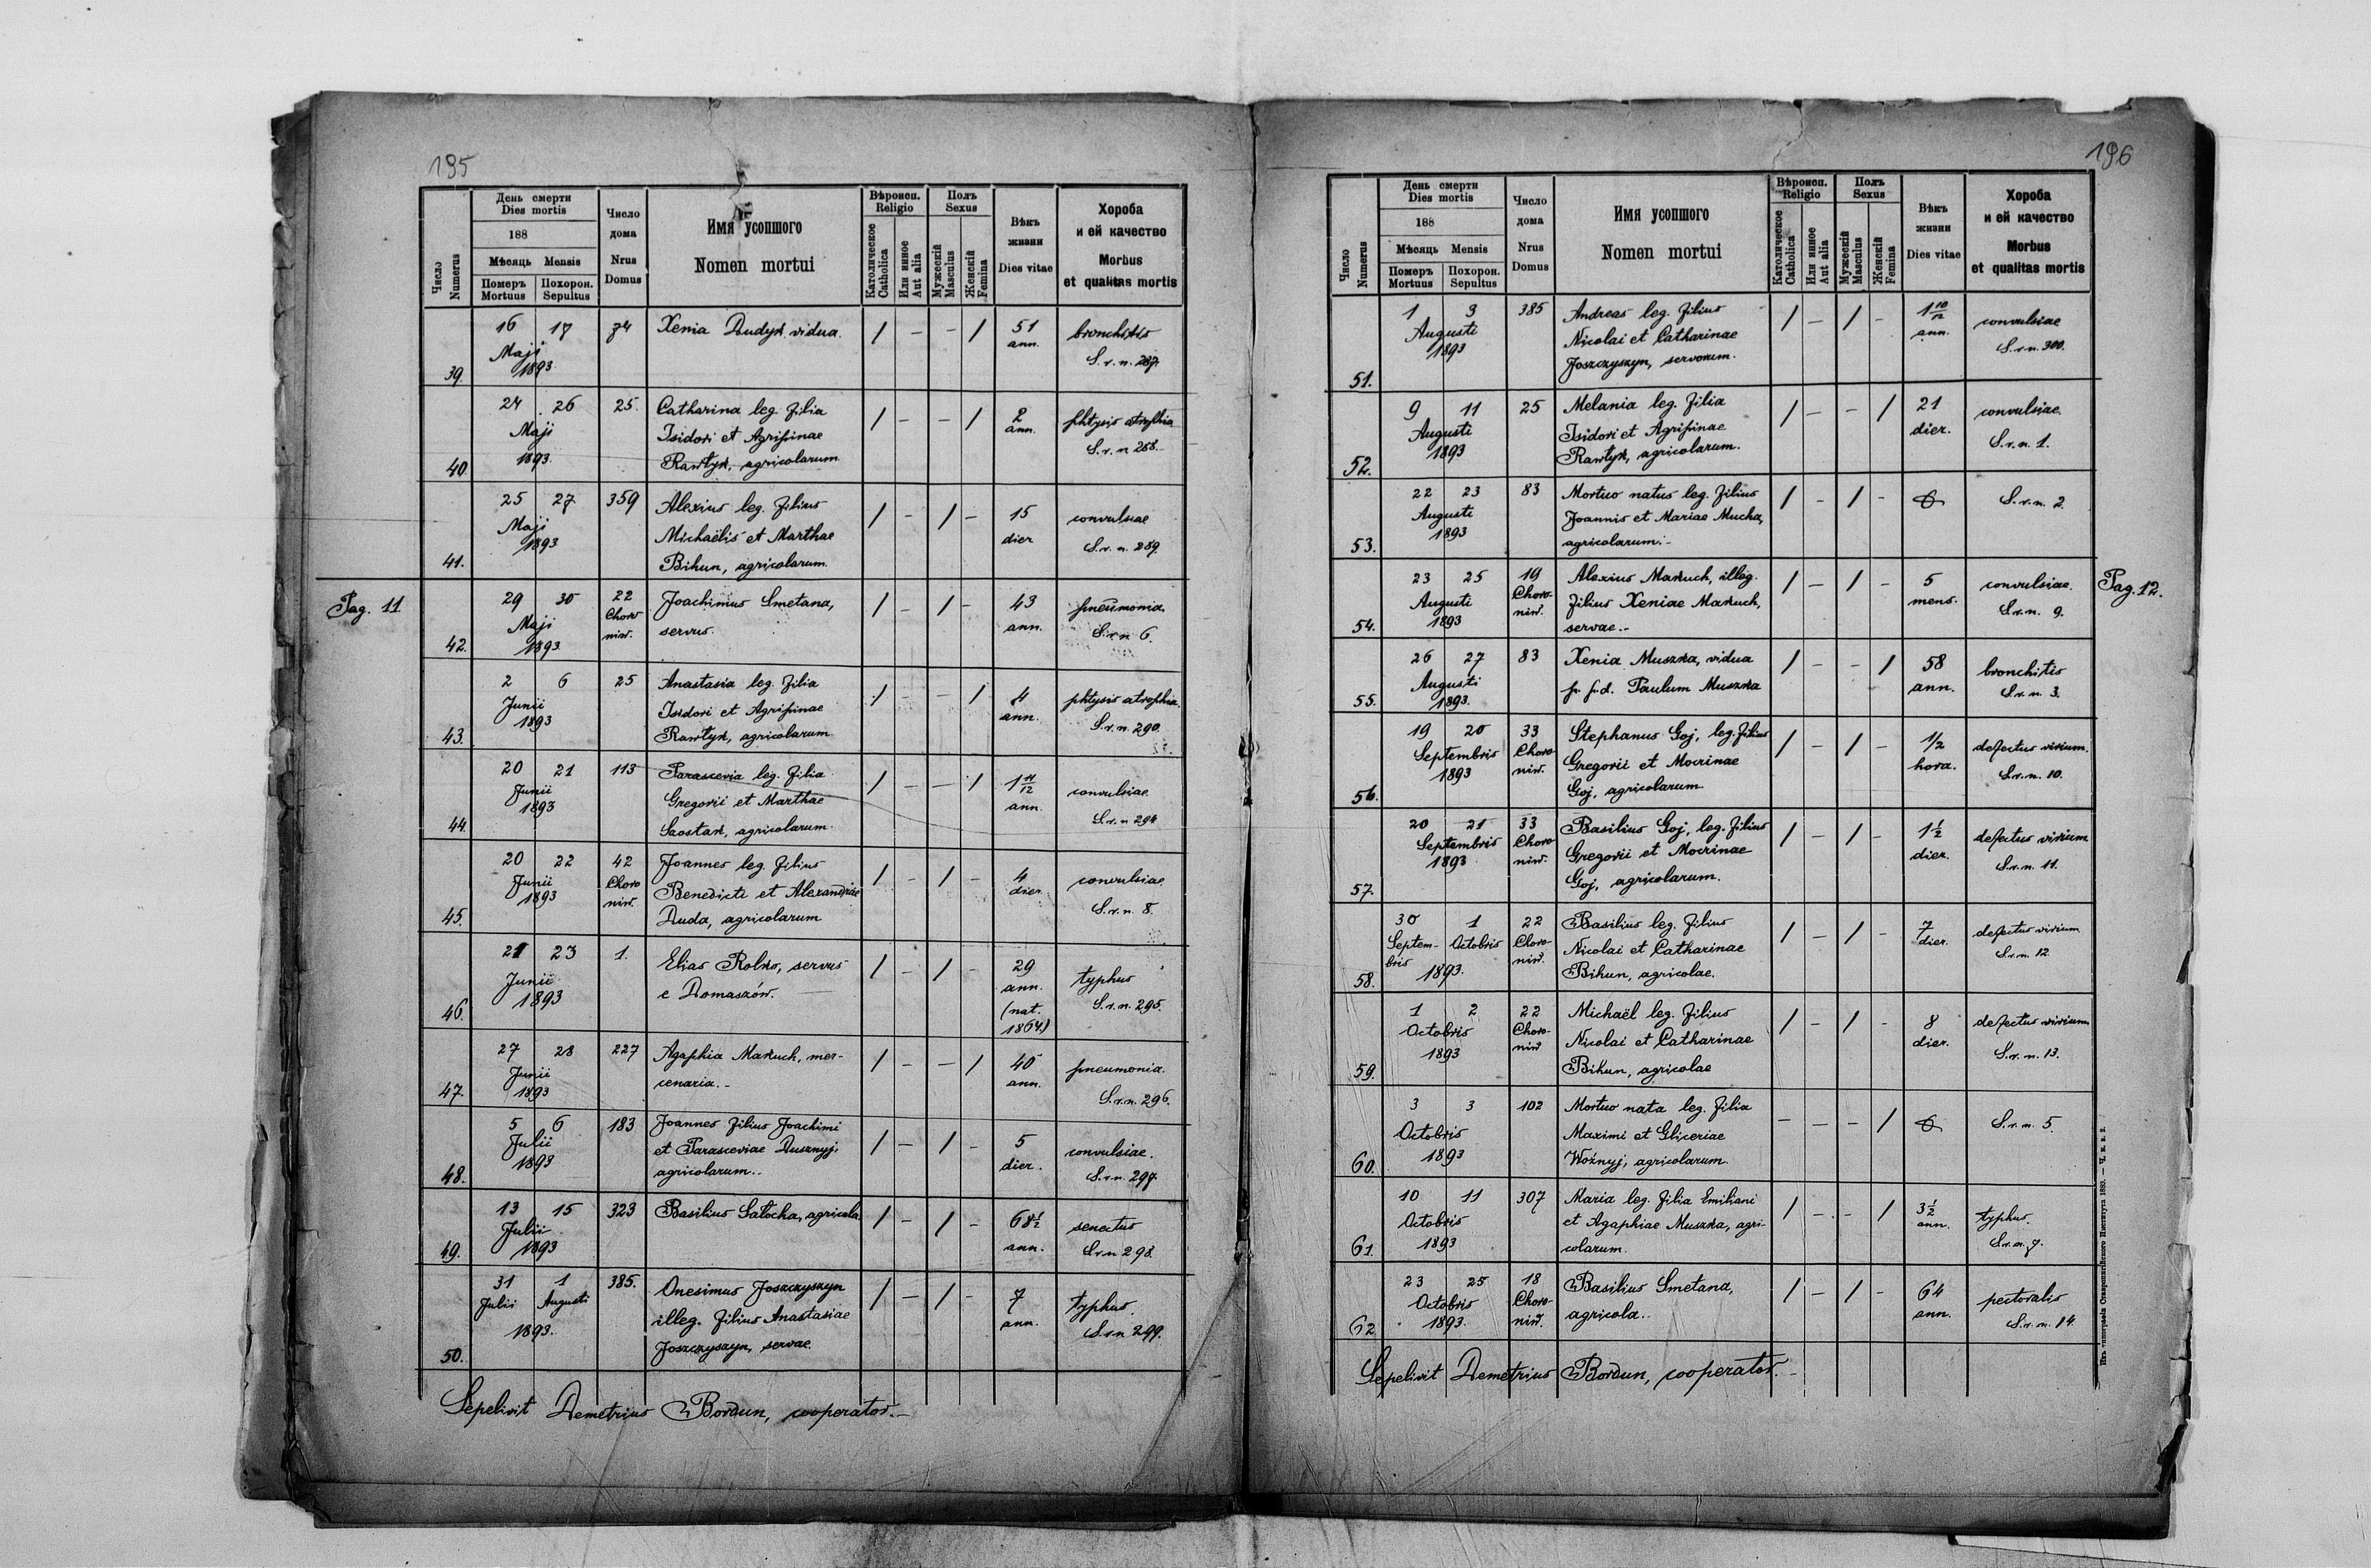 195
Число Numerus
День смерти
Dies mortis
188
Мѣсяць Mensis
Померъ Mortuus
Похорон. Sepultus
Число дома
Nrus Domus
Имя усопшого
Nomen mortui
Вѣроисп.
Religio
Католическое Catholica
Или инное Aut alia
Полъ
Sexus
Мужескій Masculus
Женскій Femina
Вѣкъ жизни
Dies vitae
Хороба
и ей качество
Morbus
et qualitas mortis
39. 16 17 Maji 1893 74 Xenia Dudyk vidua. / - - / 51 ann. bronchitis S.r.n. 287.
40. 24 26 Maji 1893. 25. Catharina leg. filia
Isidori et Agripinae
Rawtyk, agricolarum / - - / 2 ann. phtysis atrophia S.r.n 288.
41. 25 27 Maji 1893 359 Alexius leg. filius
Michaëlis et Marthae
Bihun, agricolarum. / - / - 15 dier convulsiae S.r.n. 289.
Pag. 11
42. 29 30 Maji 1893 22 Choroniw. Joachimus Smetana,
servus. / - / - 43 ann. pneumonia. S.r.n 6.
43. 2 6 Junii 1893 25 Anastasia leg. filia
Isidori et Agripinae
Rawtyk, agricolarum / - - / 4 ann. phtysis atrophia. S.r.n. 290.
44. 20 21 Junii 1893 113 Parascevia leg. filia
Gregorii et Marthae
Szostak, agricolarum. / - - / 1 11/12 ann. convulsiae. S.r.n 294
45. 20 22 Junii 1893 42 Choroniw. Joannes leg. filius
Benedicti et Alexandriae
Duda, agricolarum / - / - 4 dier convulsiae. S.r.n. 8.
46. 21 23 Junii 1893 1. Elias Rolko, servus
e Domaszów. / - / - 29 ann. (nat. 1864.) typhus S.r.n. 295.
47. 27 28 Junii 1893 227 Agaphia Makuch, mer-
cenaria.- / - - / 40 ann. pneumonia. S.r.n. 296.
48. 5 6 Julii 1893 183 Joannes filius Joachimi
et Parasceviae Dusznyj,
agricolarum.. / - / - 5 dier. convulsiae. S.r.n. 297.
49. 13 15 Julii 1893 323 Basilius Satocha, agricola. / - / - 68 1/2 ann. senectus S.r.n 298.
50. 31 Julii 1 Augusti 1893. 385. Onesimus Joszczyszyn
illeg. filius Anastasiae
Joszczyszyn, servae / - / - 7 ann. typhus. S.r.n 299.
Sepelivit Demetrius Bordun, cooperator.-
196
Число Numerus
День смерти
Dies mortis
188
Мѣсяць Mensis
Померъ Mortuus
Похорон. Sepultus
Число дома
Nrus Domus
Имя усопшого
Nomen mortui
Вѣроисп.
Religio
Католическое Catholica
Или инное Aut alia
Полъ
Sexus
Мужескій Masculus
Женскій Femina
Вѣкъ жизни
Dies vitae
Хороба
и ей качество
Morbus
et qualitas mortis
51. 1 3 Augusti 1893 385 Andreas leg. filius
Nicolai et Catharinae
Joszczyszyn, servorum. / - / - 1 10/12 ann. convulsiae S.r.n. 300.
52. 9 11 Augusti 1893 25 Melania leg. filia
Isidori et Agripinae
Rawtyk, agricolarum. / - - / 21 dier. convulsiae. S.r.n. 1.
53. 22 23 Augusti 1893 83 Mortuo natus leg. filius
Joannis et Mariae Mucha,
agricolarum.- / - / - S.r.n. 2.
54. 23 25 Augusti 1893 19 Choroniw. Alexius Makuch, illeg.
filius Xeniae Makuch,
servae.- / - / - 5 mens. convulsiae. S.r.n. 9.
Pag. 12.
55. 26 27 Augusti 1893. 83 Xenia Muszka, vidua
p. p. d. Paulum Muszka / - - / 58 ann. bronchitis S.r.n. 3.
56. 19 20 Septembris 1893 33 Choroniw. Stephanus Goj, leg. filius
Gregorii et Mocrinae
Goj, agricolarum. / - / - 1/2 hora. defectus virium. S.r.n. 10.
57. 20 21 Septembris 1893 33 Choroniw. Basilius Goj, leg. filius
Gregorii et Mocrinae
Goj, agricolarum. / - / - 1 1/2 dier. defectus virium S.r.n. 11.
58. 30 Septembris 1 Octobris 1893. 22 Choroniw. Basilius leg. filius
Nicolai et Catharinae
Bihun, agricolae. / - / - 7 dier. defectus virium S.r.n. 12.
59. 1 2 Octobris 1893 22 Choroniw Michaël leg. filius
Nicolai et Catharinae
Bihun, agricolae / - / - 8 dier. defectus virium S.r.n. 13.
60. 3 3 Octobris 1893 102 Mortuo nata leg. filia
Maximi et Gliceriae
Woźnyj, agricolarum. - - - / S.r.n. 5.
61. 10 11 Octobris 1893 307 Maria leg. filia Emiliani
et Agaphiae Muszka, agri-
colarum. / - - / 3 1/2 ann. typhus. S.r.n. 7.
62. 23 25 Octobris 1893. 18 Choroniw. Basilius Smetana,
agricola.. / - / - 64 ann. pectoralis S.r.n. 14.
Sepelivit Demetrius Bordun, cooperator.-
Изъ типографіи Ставропигійского Института 1889. — Ч. в. в. 2.